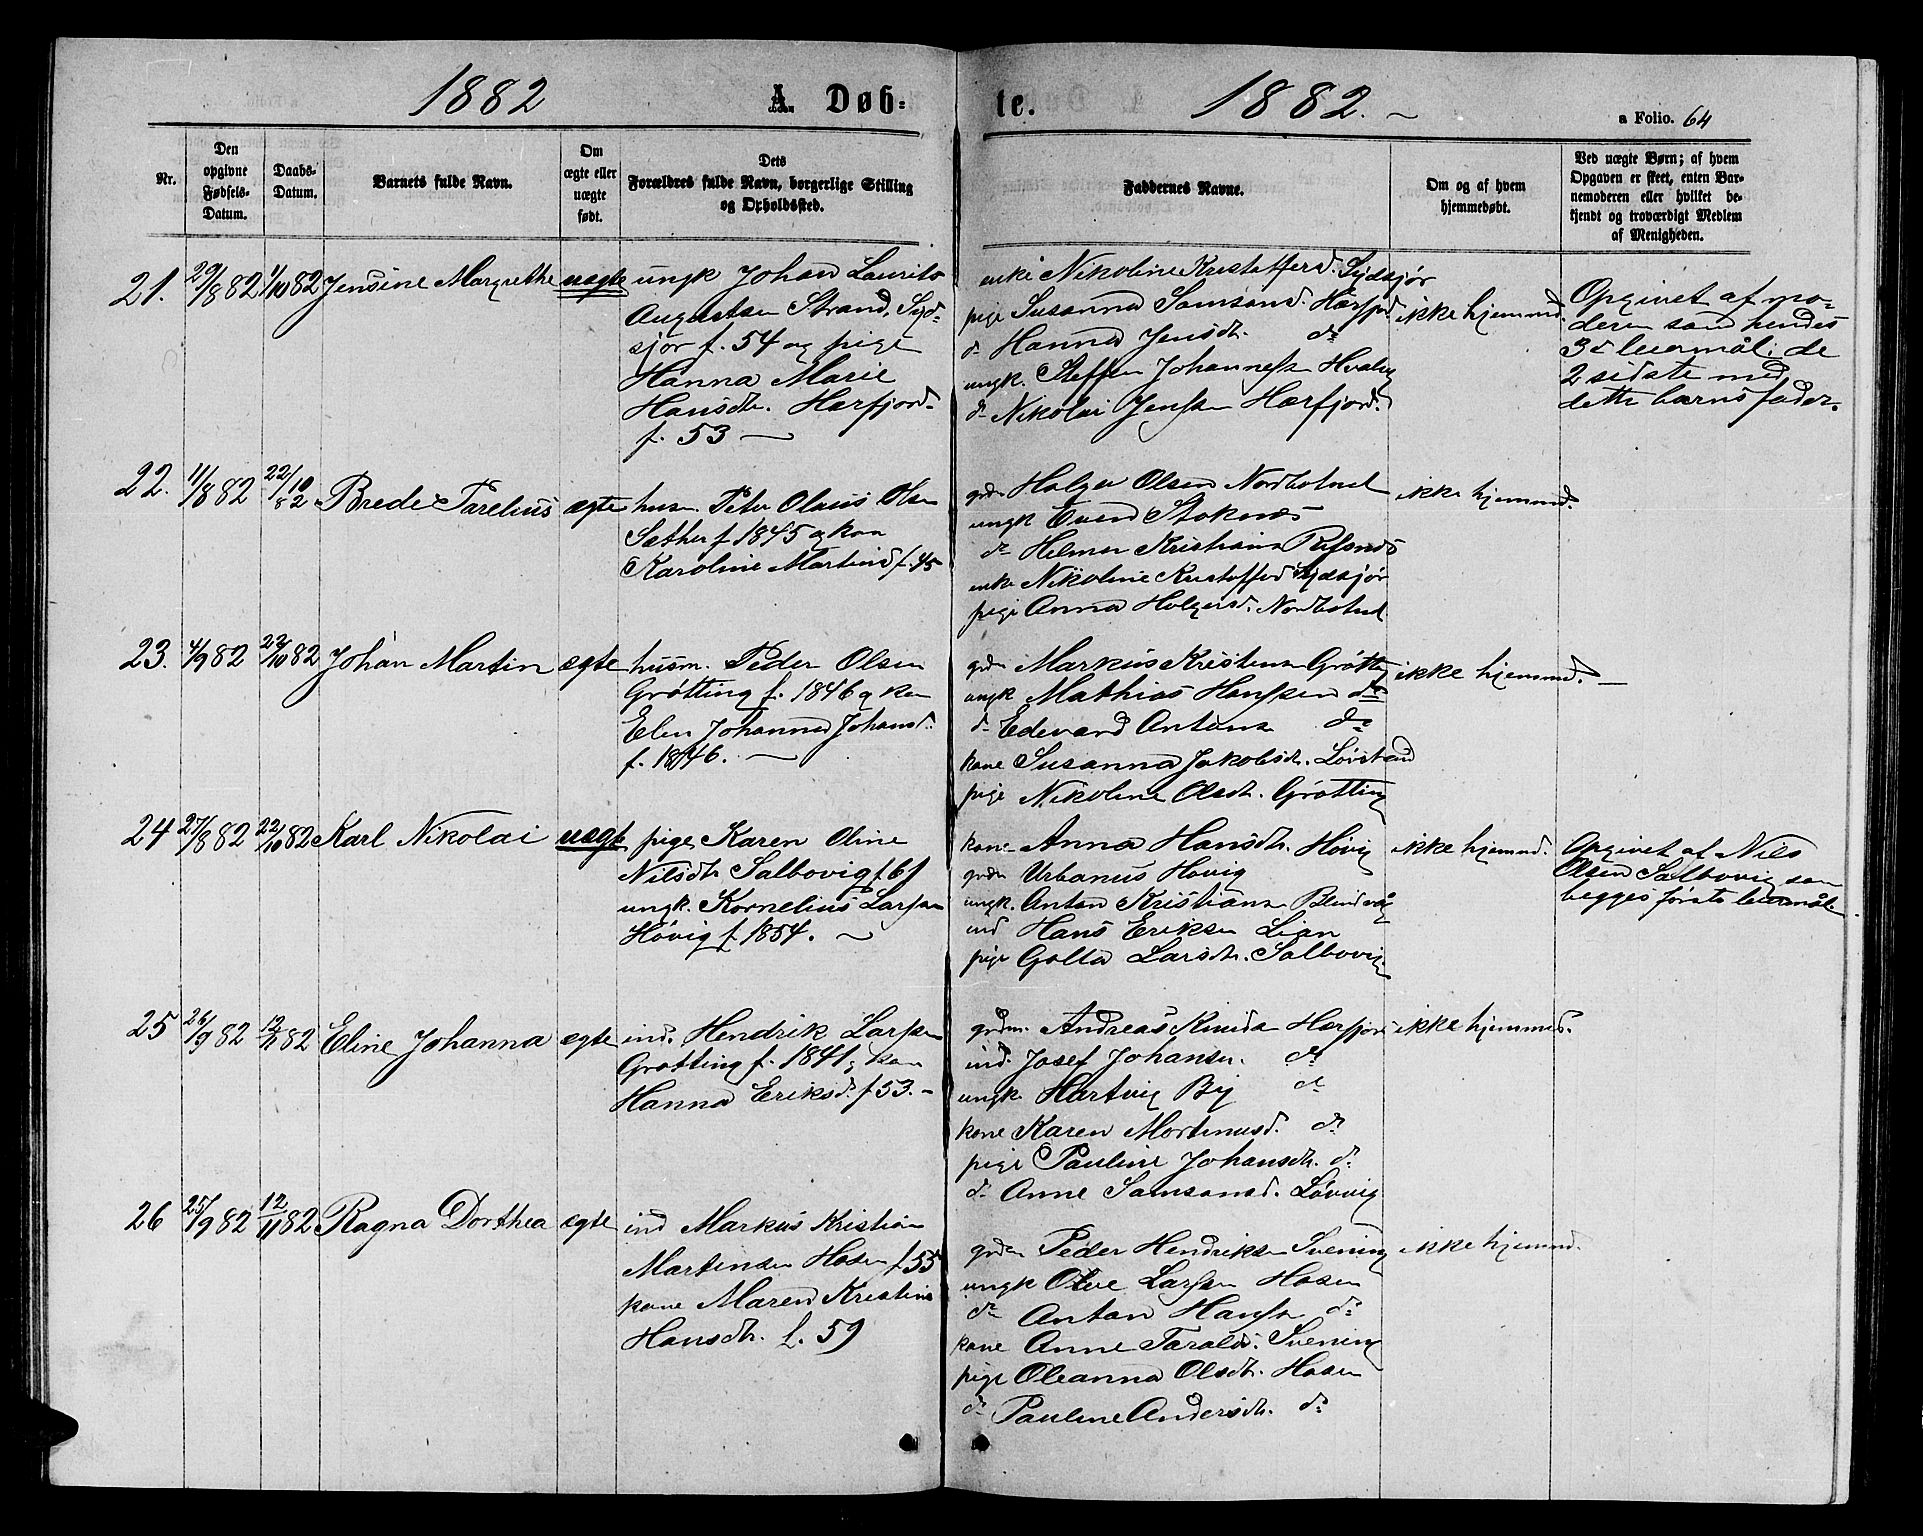 1882
A. Døb=
te.
1882.
a Folio. 64
Nr.
Den opgivne Fødsels-Datum.
Daabs-Datum.
Barnets fulde Navn.
Om ægte eller uægte født.
Dets Forældres fulde Navn, borgerlige Stilling og Opholdssted.
Faddernes Navne.
Om og af hvem hjemmedøbt.
Ved uægte Børn; af hvem Opgaven er skeet, enten Barnemoderen eller hvilket bekjendt og troværdigt Medlem af Menigheden.
21. 29/8 82 1/10 82 Jensine Margrethe uægte
ungk Johan Laurits
Augustsen Strand, Syd=
sjør f. 54 og pige
Hanna Marie
Hansdtr. Hærfjord
f. 53 —
enke Nikoline Kristofferd. Sydsjør
pige Susanna Samsond. Hærfjord
do Hanna Jensdtr. do
ungk. Steffen Johannessen
do Nikolai Jenssen Hærfjord
ikke hjemmd.
Opgivet af mo=
deren som hendes
3die leiermål; de
2 sidste med
dette barns fader.
22. 11/8 82 22/10 82 Brede Parelius ægte
husm. Peter Olaus Olsen
Sæther f 1845 og kon
Karoline Martinsd f. 45
grdm Holger Olsen Nordbotnet
ungk Even Stoknes
do Helmer Kristiansen Refsnes
enke Nikoline Kristofferd Sydsjør
pige Anna Holgersd. Nordbotnet
ikke hjemmd.
23. 4/9 82 22/10 82 Johan Martin ægte
husm. Peder Olsen
Grøtting f. 1846 og kon
Elen Johanna Johansd.
f. 1846. —
grdm Markus Kristensen Grøtting
ungk Mathias Hanssen do
do Edevard Antons do
kone Susanna Jakobsdtr. Løvstrand
pige Nikoline Olsdtr. Grøtting
ikke hjemmd. —
24 27/8 82 22/10 82 Karl Nikolai uægte
pige Karen Oline
Nilsdtr Salbovig f. 61
ungk. Kornelius Larssen
Høvig f. 1854. —
kone Anna Hansdtr. Høvig
grdm Urbanus Høvig
ungk. Anton Kristiansen Blindvåg
ind Hans Eriksen Lian
pige Golla Larsdtr. Salbovig
ikke hjemmd.
Opgivet af Nils
Olsen Salbovig som
begges første leiermål
25 26/9 82 12/11 82 Eline Johanna ægte
ind. Hendrik Larssen
Grøtting f. 1841 og kon
Hanna Eriksd. f 53. —
grdm. Andreas Knuds Hærfjord
ind. Josef Johansen. do
ungk Hartvig By do
kone Karen Mortinusd. do
pige Pauline Johansdtr. do
do Anne Samsonsd. Løvvig
ikke hjemmed.
26 25/9 82 12/11 82 Ragna Dorthea ægte
ind Markus Kristian
Martinsen Hosen f 55
kone Maren Kristine
Hansdtr. f. 59
grdm Peder Hendriksen Svening
ungk Olve Larssen Hosen
do Anton Hanssen do
kone Anne Taraldsd. Svening
pige Oleanna Olsdtr. Hosen
do Pauline Andersdtr. do
ikke hjemmd.